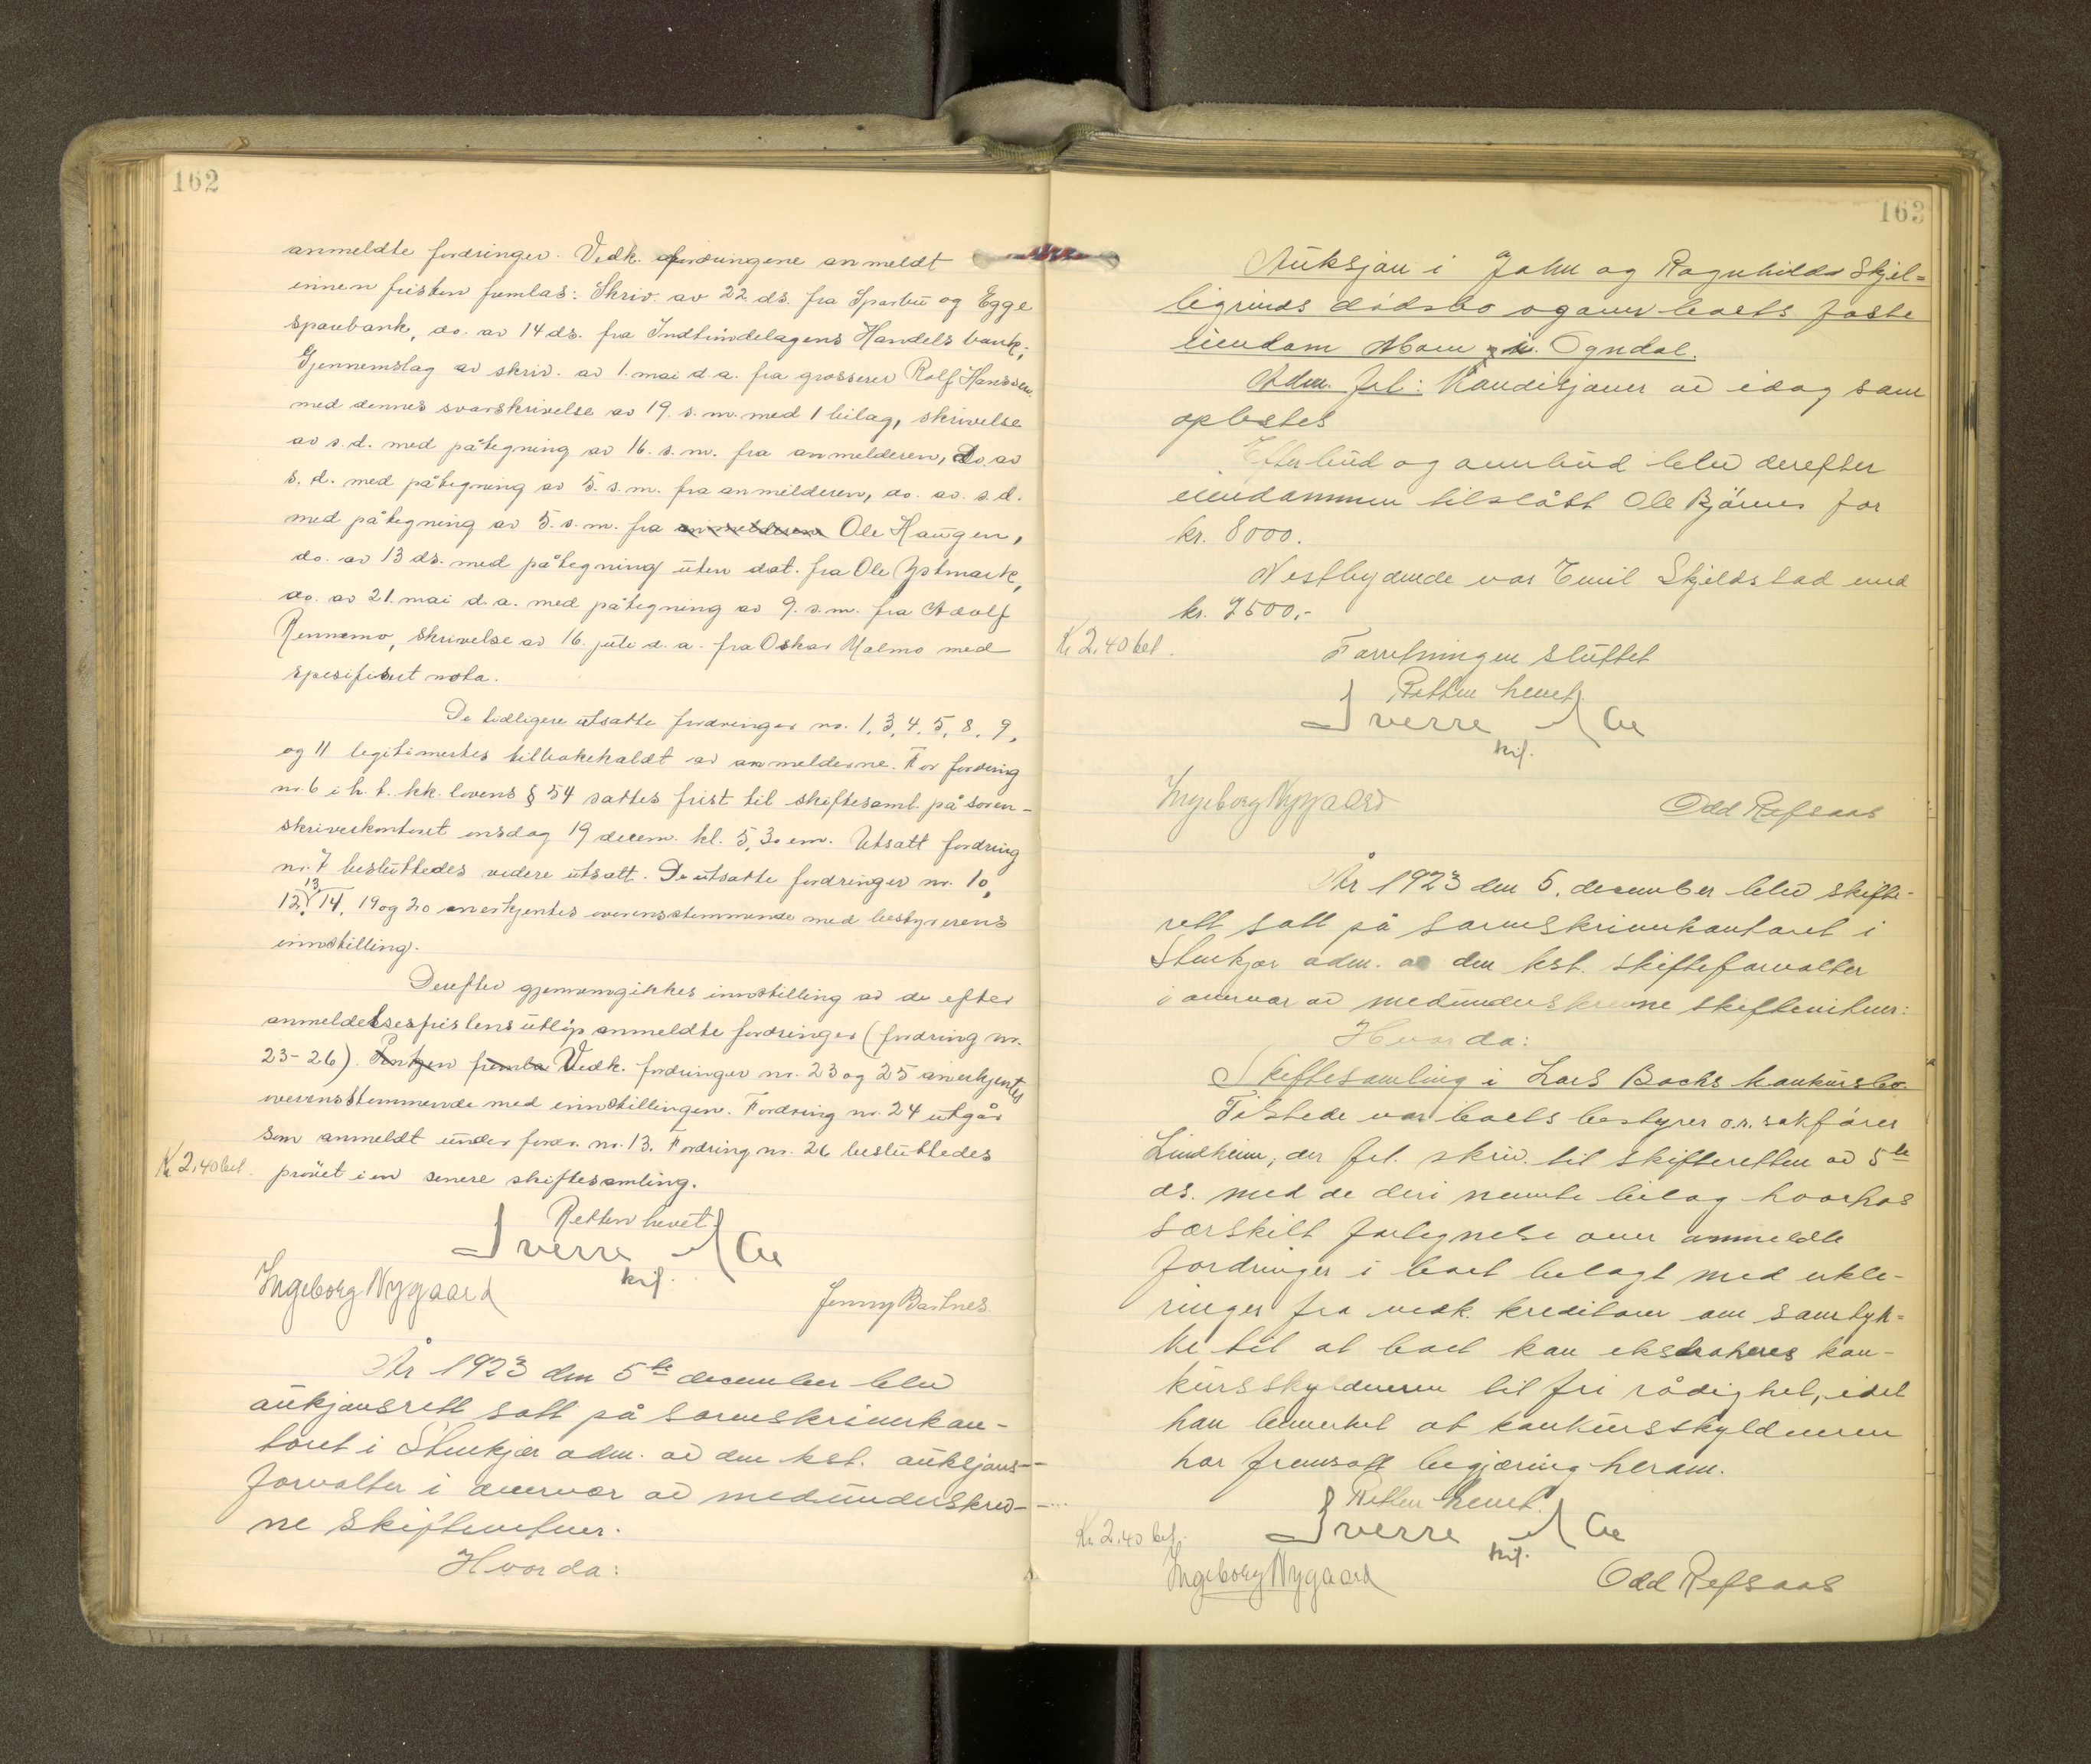 162
anmeldte fordringer. Vedk. fordringene anmeldt
innen fristen fremlas: Skriv. av 22 ds. fra Sparbu og Egge
sparebank, do. av 14 ds. fra Indtrøndelagens Handelsbank,
Gjennemslag av skriv. av 1. mai d.a. fra grosserer Rolf Hanssen
med dennes svarskrivelse av 19. s.m. med 1 bilag, skrivelse
av s.d. med påtegning av 16. s.m. fra anmelderen, do. av
s.d. med påtegning av 5. s.m. fra anmelderen, do. av. s.d.
med påtegning av 5. s.m. fra anmelderen Ole Haugen,
do. av 13 ds. med påtegning uten dat. fra Ole Ystmark,
do. av 21. mai d.a. med påtegning av 9. s.m. fra Adolf
Rennemo, skrivelse av 16. juli d.a. fra Oskar Malmo med
spesifisert nota.
De tidligere utsatte fordringer nr. 1, 3, 4, 5, 8, 9,
og 11 legitimertes tilbakekaldt av anmelderne. For fordring
nr. 6 i h. t. kk. lovens § 54 sattes frist til skiftesaml. på soren-
skriverkontoret onsdag 19 decem. kl. 5,30 em. Utsatt fordring
nr. 7 besluttedes videre utsatt. De utsatte fordringer nr. 10,
12, 13, 14, 19 og 20 anerkjentes overensstemmende med bestyrerens
innstilling.
Derefter gjennemgikkes innstilling av de efter
anmeldelsesfristens utløp anmeldte fordringer (fordring nr.
23-26). Vedk. fordringer nr. 23 og 25 anerkjentes
overensstemmende med innstillingen. Fordring nr. 24 utgår
som anmeldt under fordr. nr. 13. Fordring nr. 26 besluttedes
Kr 2,40 bet. prøvet i en senere skiftesamling.
Retten hevet.
Sverre
kst.
Ingeborg Nygaard Jenny Bartnes.
År 1923 den 5te december blev
aukjonsrett satt på sorenskriverkon-
toret i Stenkjær adm. av den kst. auksjons-
forvalter i overvær av medunderskrev-
ne skiftevitner.
Hvorda:
163
Auksjon i John og Ragnhilds Skjel-
ligrinds dødsbo over boets faste
eiendom Moen i Ogndal.
Adm. frl: Kondisjoner av idag som
oplestes
Efter bud og overbud blev derefter
eiendommen tilslått Ole Bjørnes for
kr. 8000.
Nestbydende var Emil Skjeldstad med
kr. 7500,-
Kr 2,40 bet. Forretningen sluttet
Retten hevet.
Sverre
kst.
Ingeborg Nygaard Odd Refsaas
År 1923 den 5. december blev skifte-
rett satt på sorenskriverkontoret i
Stenkjær adm. av den kst. skifteforvalter
i overvær av medunderskrevne skiftevitner:
Hvorda:
Skiftesamling i Lars Bachs konkursbo.
Tilstede var boets bestyrer o.r. sakfører
Lindheim, der frl. skriv. til skifteretten av 5te
ds. med de deri nevnte bilag hvorhos
særskilt fortegnelse over anmeldte
fordringer i boet belagt med erklæ-
ringer fra vedk. kreditorer om samtyk-
ke til at boet kan ekstraheres kon-
kursskyldneren til fri rådighet, idet
han bemerket at konkursskyldneren
har fremsatt begjæring herom.
Retten hevet.
Kr. 2,40 bet. Sverre
kst.
Ingeborg Nygaard Odd Refsaas